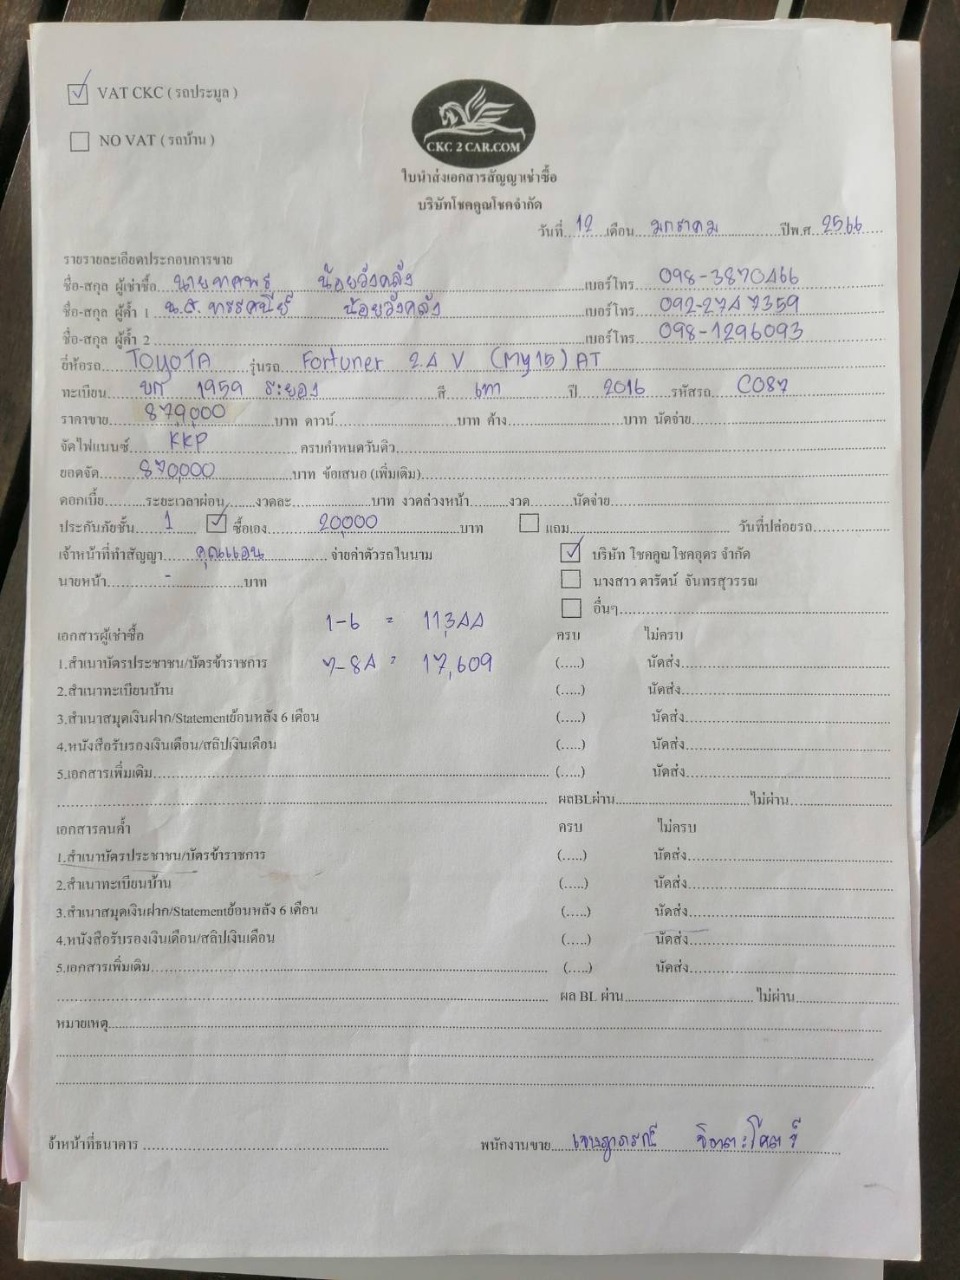 VAT CKC ( รถประมูล )
NO VAT ( รถบ้าน )
CKC 2 CAR.COM
ใบนำส่งเอกสารสัญญาเช่าซื้อ
บริษัทโชคคูณโชคจำกัด
วันที่ 12 เดือน มกราคม ปีพ.ศ 2566
รายรายละเอียดประกอบการขาย
ชื่อ-สกุล ผู้เช่าซื้อ นายทศพร น้อยวังคลัง เบอร์โทร 098-3870466
ชื่อ-สกุล ผู้ค้ำ 1 น.ส. ทรรศนีย์ น้อยวังคลัง เบอร์โทร 092-2747359
ชื่อ-สกุล ผู้ค้ำ 2 เบอร์โทร 098-1296093
ยี่ห้อรถ TOYOTA รุ่นรถ Fortuner 2.4 V (My15) AT
ทะเบียน ขก 1959 ระยอง สี เทา ปี 2016 รหัสรถ C087
ราคาขาย 879,000 บาท ดาวน์ บาท ค้าง บาท นัดจ่าย
จัดไฟแนนซ์ KKP ครบกำหนดวันดิว
ยอดจัด 870,000 บาท ข้อเสนอ (เพิ่มเติม)
ดอกเบี้ย ระยะเวลาผ่อน งวดละ บาท งวดล่วงหน้า งวด นัดจ่าย
ประกันภัยชั้น 1 ซื้อเอง 20,000 บาท แถม วันที่ปล่อยรถ
เจ้าหน้าที่ทำสัญญา คุณแอน จ่ายค่าตัวรถในนาม บริษัท โชคคูณ โชคอุดร จำกัด
นายหน้า - บาท นางสาว ดารัตน์ จันทรสุวรรณ
อื่นๆ
1-6 = 11,344
เอกสารผู้เช่าซื้อ ครบ ไม่ครบ
1.สำเนาบัตรประชาชน/บัตรข้าราชการ 7-84 = 17,609 (.....) นัดส่ง
2.สำเนาทะเบียนบ้าน (.....) นัดส่ง
3.สำเนาสมุดเงินฝาก/Statementย้อนหลัง 6 เดือน (.....) นัดส่ง
4.หนังสือรับรองเงินเดือน/สลิปเงินเดือน (.....) นัดส่ง
5.เอกสารเพิ่มเติม (.....) นัดส่ง
ผลBLผ่าน ไม่ผ่าน
เอกสารคนค้ำ ครบ ไม่ครบ
1.สำเนาบัตรประชาชน/บัตรข้าราชการ (.....) นัดส่ง
2.สำเนาทะเบียนบ้าน (.....) นัดส่ง
3.สำเนาสมุดเงินฝาก/Statementย้อนหลัง 6 เดือน (.....) นัดส่ง
4.หนังสือรับรองเงินเดือน/สลิปเงินเดือน (.....) นัดส่ง
5.เอกสารเพิ่มเติม (.....) นัดส่ง
ผล BL ผ่าน ไม่ผ่าน
หมายเหตุ
จ้าหน้าที่ธนาคาร พนักงานขาย